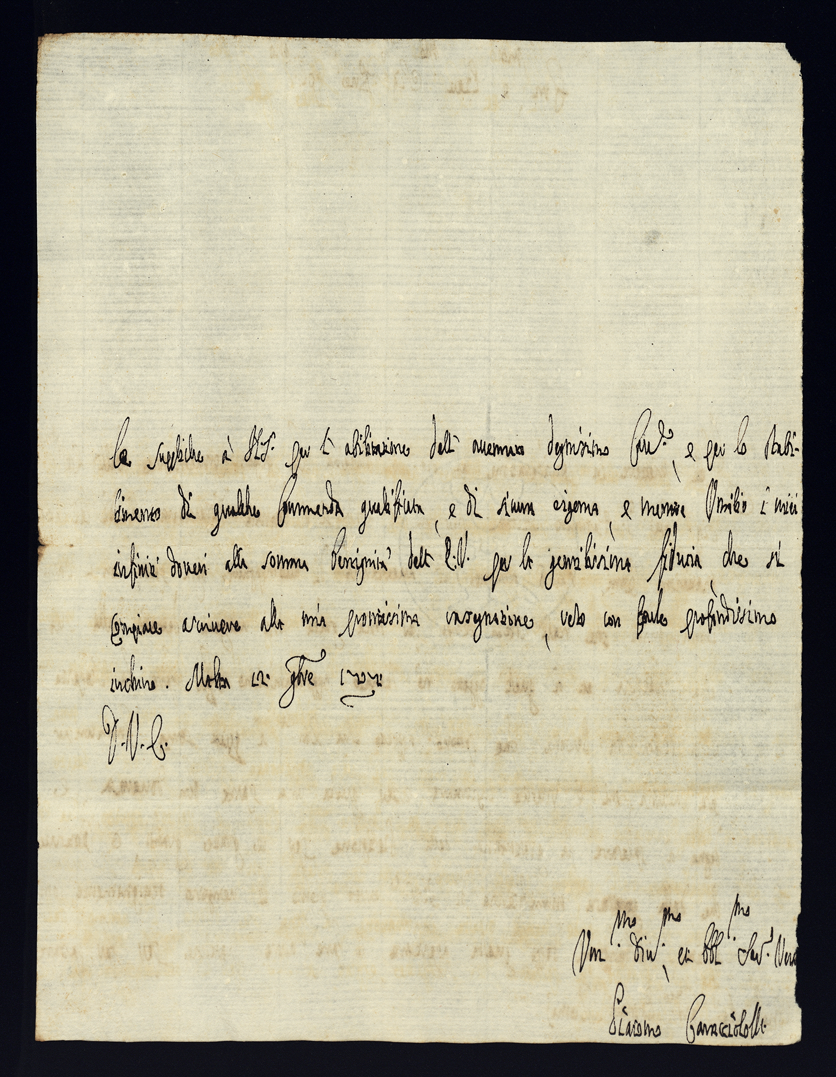 le suppliche à S.S. per l' abilitazione dell' accennato degnissimo Cav.e, e per lo stabi-
limento di qualche Commenda qualificata, e di sicura esigenza, e mentre umilio i miei
infiniti doveri alla somma Benignità dell' E.V. per la gentilissima fiducia, che si
compiace ascrivere alla mia prontissima rassegnazione, resto con profondissimo
inchino. Malta 12 9bre
D. V. E.
Um.mo Div.mo, et obbl.mo Ser.e Vero
Giacomo Caracciolo